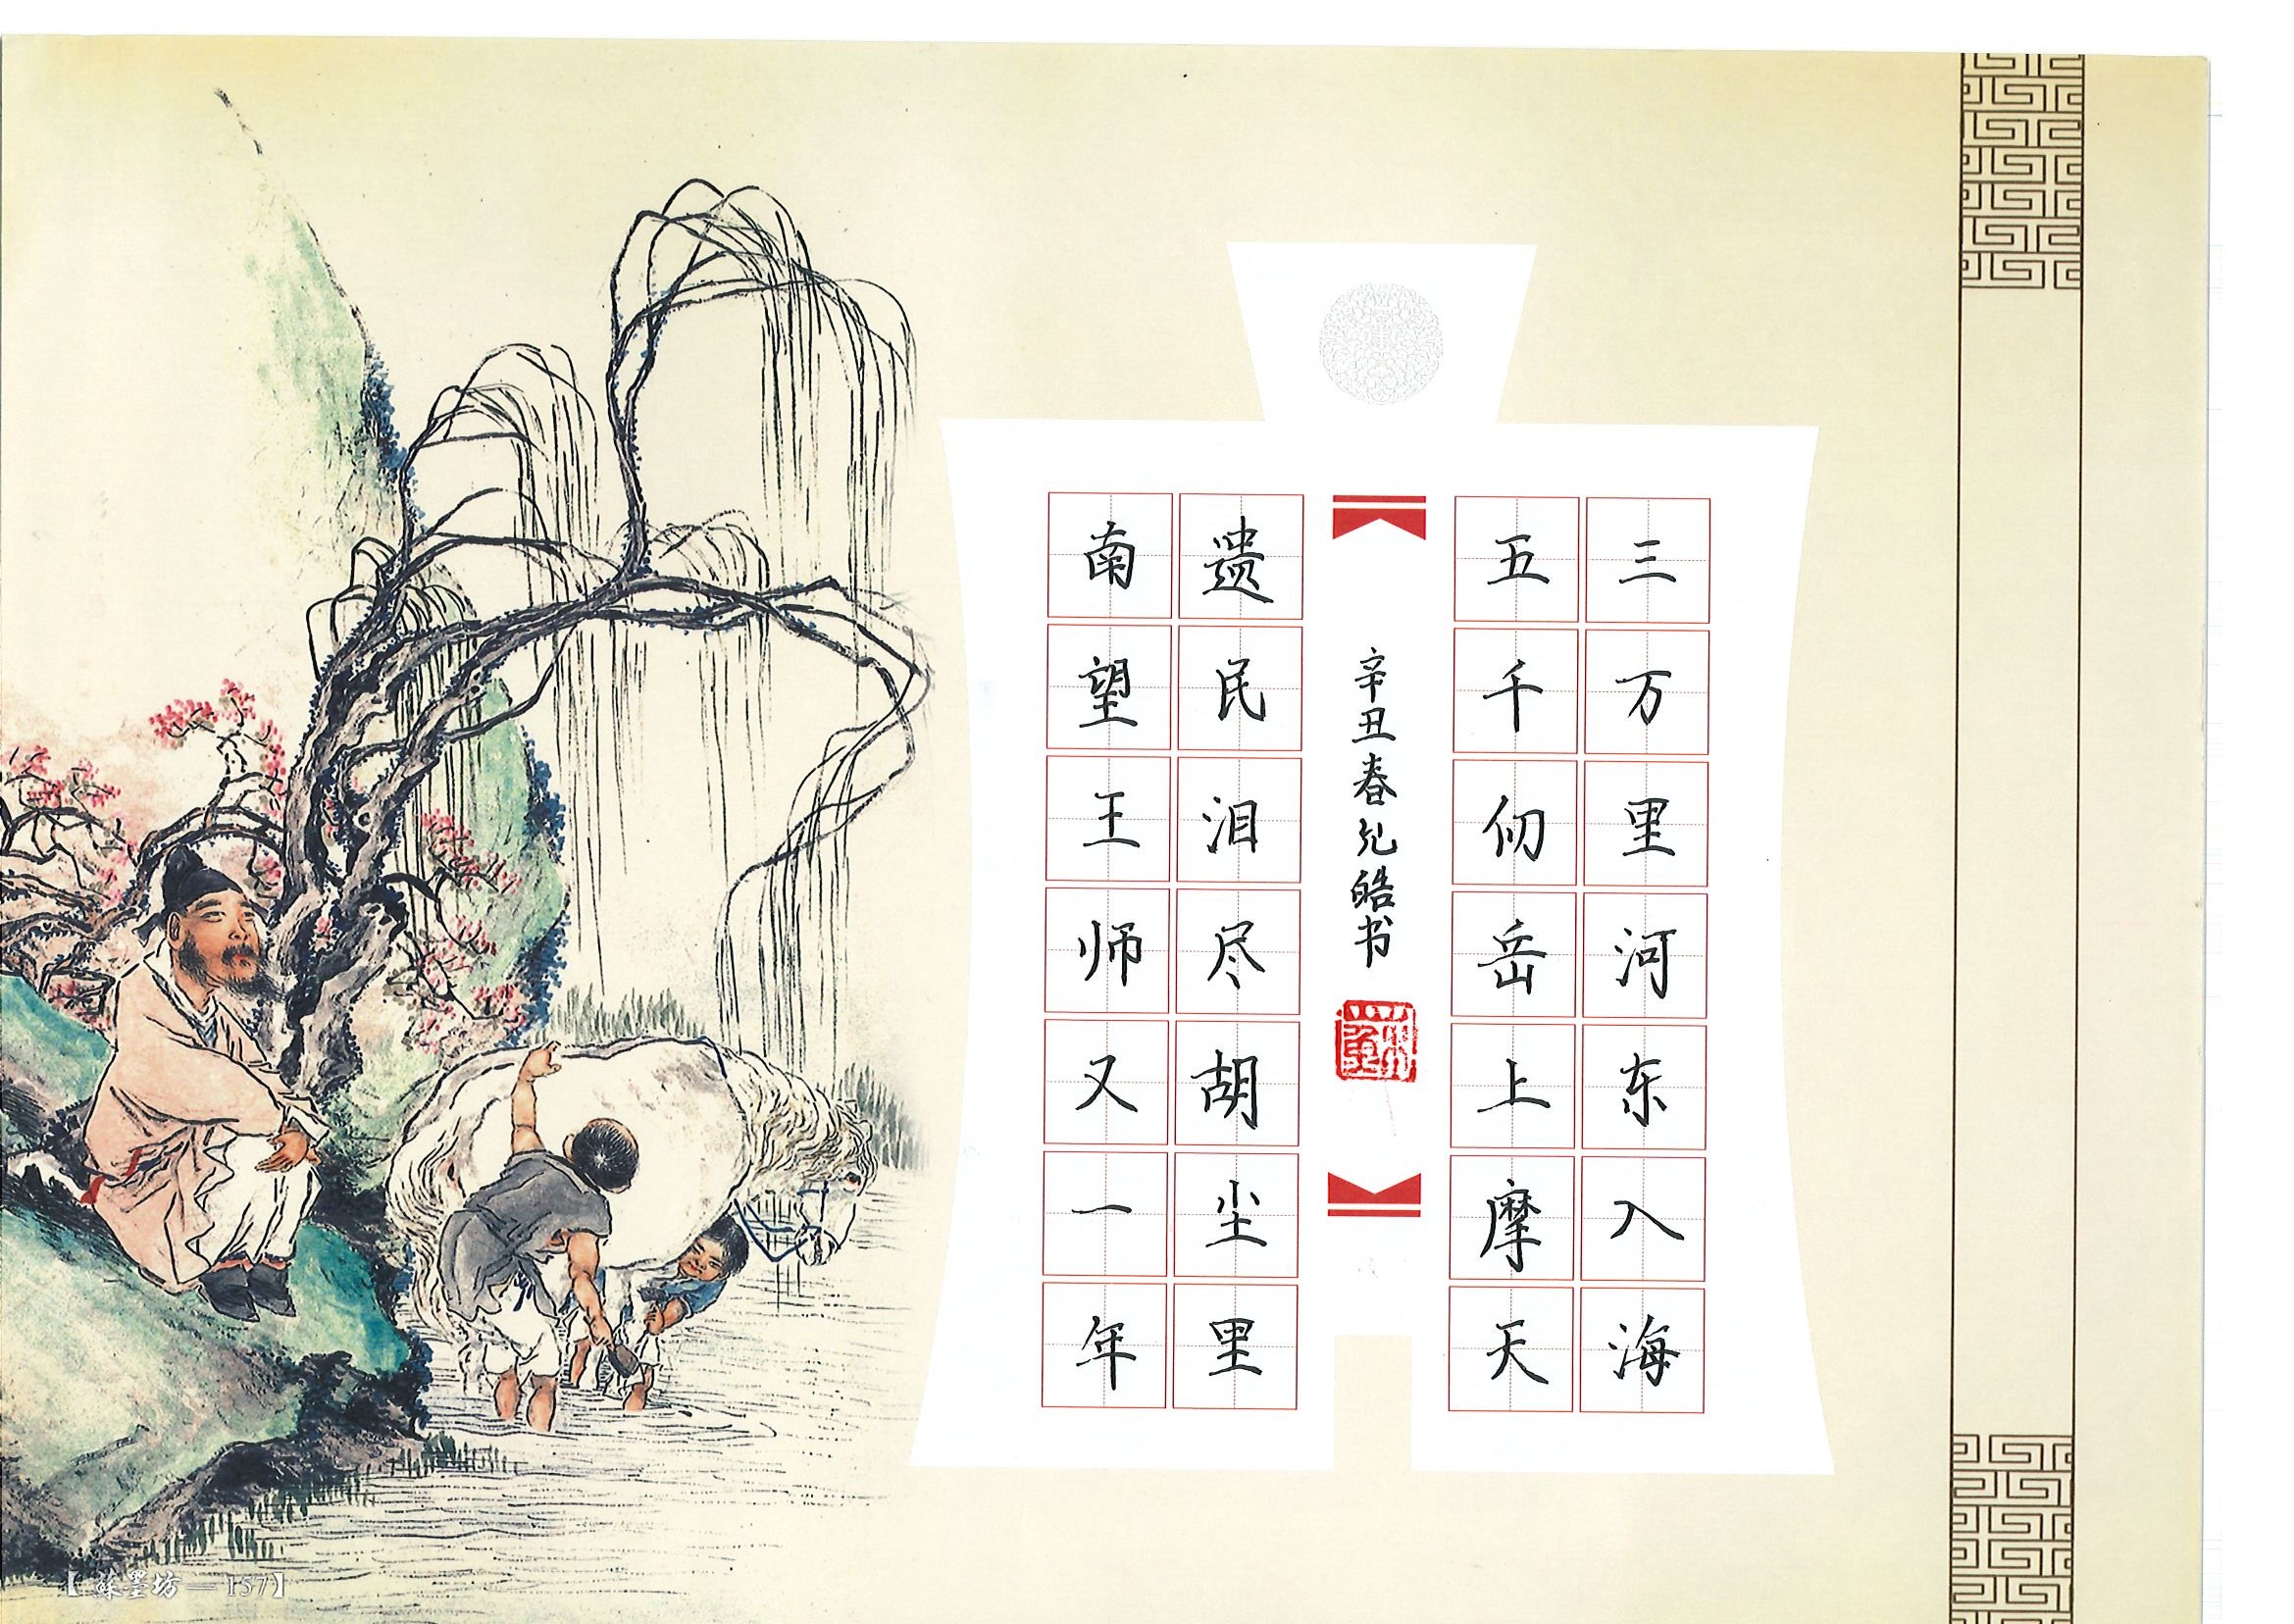 三万里河东入海
五千仞岳上摩天
辛丑春允皓书
遗民泪尽胡尘里
南望王师又一年
【蘇墨坊—157】